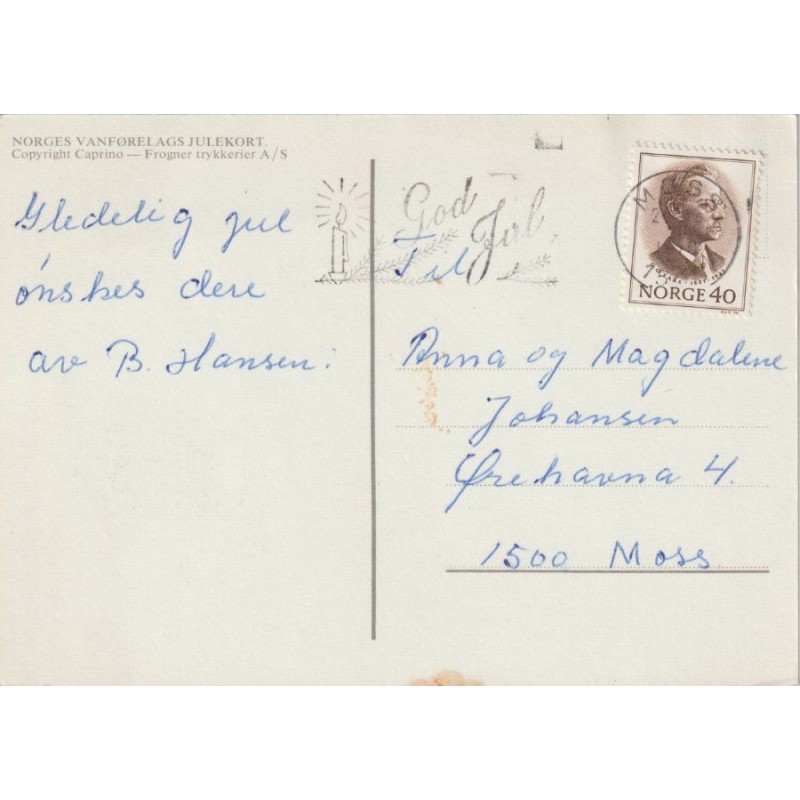 NORGES VANFØRELAGS JULEKORT.
Copyright Caprino — Frogner trykkerier A/S
Gledelig jul
ønskes dere
av B. Hansen.
God Jul
MOSS
NORGE 40
Til
Anna og Magdalene
Johansen
Ørehavna 4.
1500 Moss